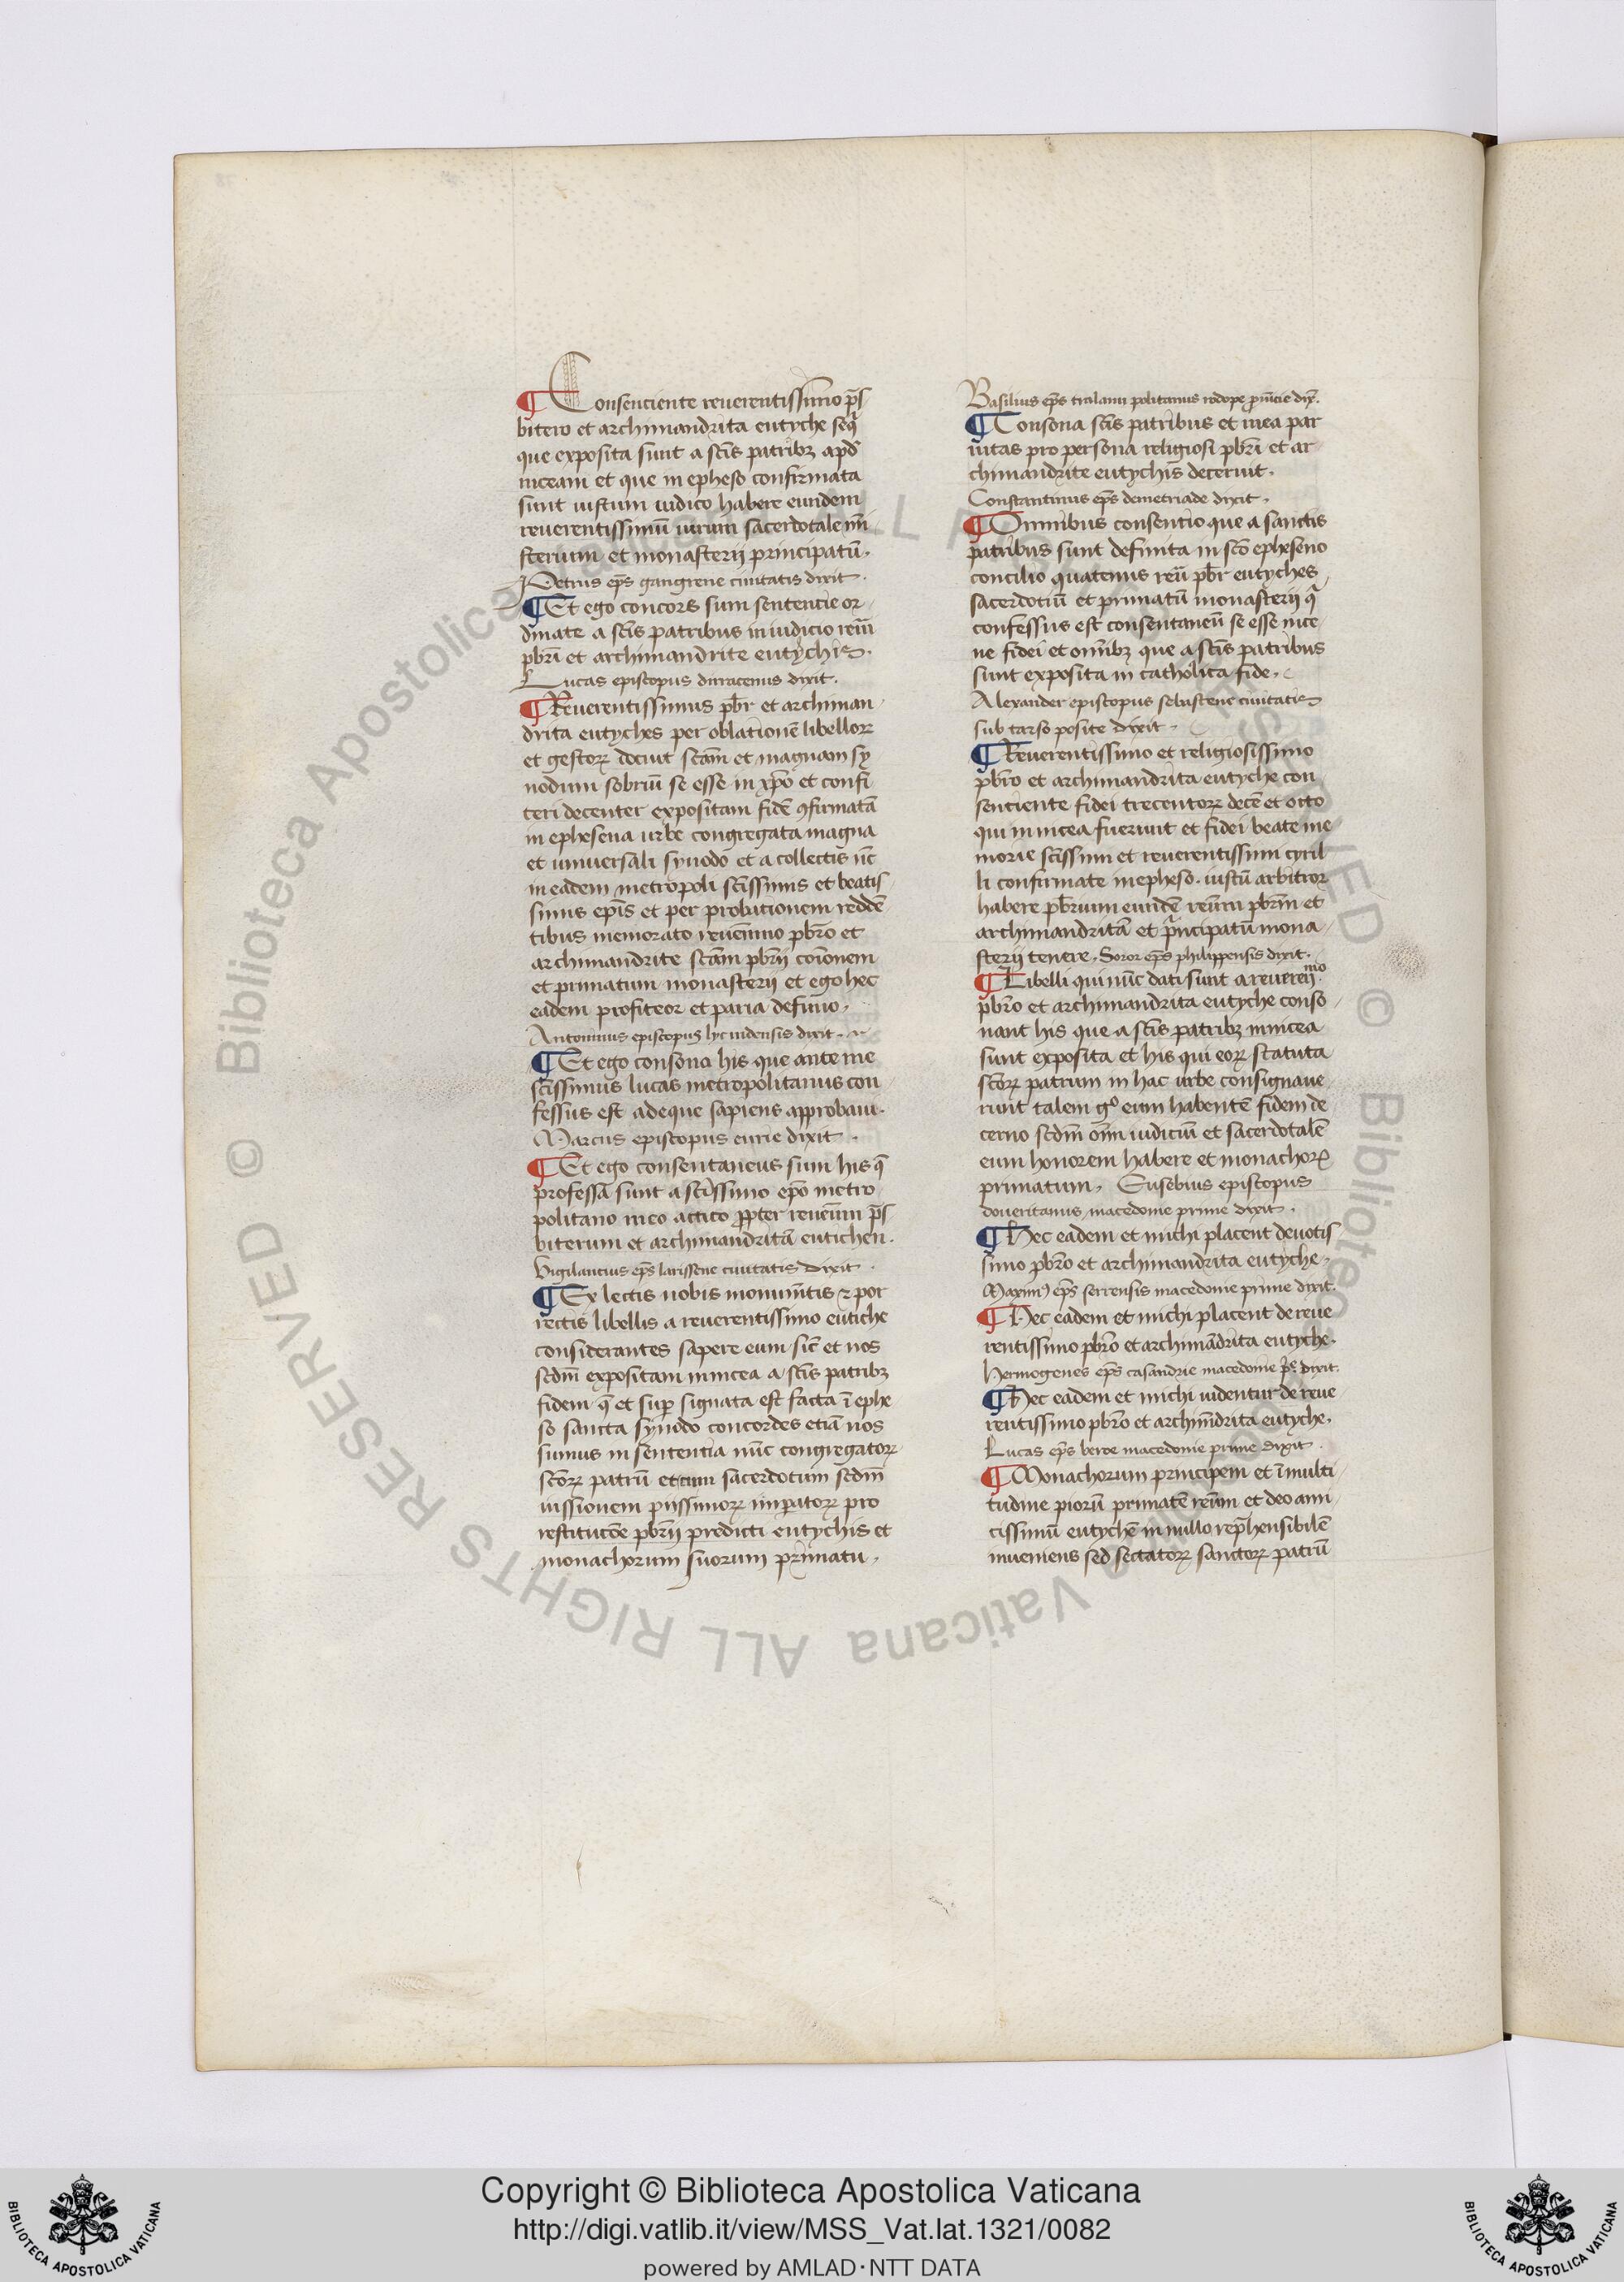 ¶ Consenciente reuerentissimo p̄s
bitero et archimandrita eutyche seq̄
que exposita sunt a sc̄is patribꝫ apd̄
niceam et que in epheso confirmata
sunt iustum iudico habere eundem
reuerentissimū uirum sacerdotale mī
sterium et monasterij principatū.
Petrus ep̄s gangrene ciuitatis dixit.
¶ Et ego concors sum sentencie or
dīnate a sc̄is patribus in iudicio reu̅i
pb̄ri et archimandrite eutychis.
Lucas episcopus durracenus dixit.
¶ Reuerentissimus pb̄r et archiman
drita eutyches per oblationē libelloꝝ
et gestoꝝ docuit sc̄am et magnam sy
nodum sobriū se esse in xp̄o et confi
teri decenter expositam fidē ꝯfirmatā
in ephesena urbe congregata magna
et uniuersali synodo et a collectis nc̄
in eadem metropoli sc̄issimis et beatis
simis ep̄is et per probationem reddē
tibus memorato reuer̄imo pb̄ro et
archimandrite sc̄am pb̄rij coīonem
et primatum monasterij et ego hec
eadem profiteor et paria definio.
Antonius episcopus lycnidensis dixit.
¶ Et ego consona his que ante me
sc̄issimus lucas metropolitanus con
fessus est adeque sapiens approbaui.
Marcus episcopus eurie dixit.
¶ Et ego consentaneus sum his q̄
professa sunt a sc̄issimo ep̄o metro
politano meo actico ꝓpter reuer̄um p̄s
biterum et archimandritā eutichen.
Vigilancius ep̄s larissene ciuitatis dixit.
¶ Ex lectis nobis monumētis ⁊ por
rectis libellis a reuerentissimo eutiche
considerantes sapere eum sic̄ et nos
scd̄m expositam in nicea a sc̄is patribꝫ
fidem q̄ et suꝑ signata est facta ī ephe
so sancta synodo concordes etiā nos
sumus in sententia nūc congregatoꝝ
sc̄oꝝ patrū et cum sacerdotum scd̄m
iussionem pijssimoꝝ imperatoꝝ pro
restituc̄oe pb̄rij predicti eutychis et
monachorum suorum primatu.
Basilius ep̄s tralanu politanus rodope prou̅icie dix̄.
¶ Consona sc̄is patribus et mea par
uitas pro persona religiosi pb̄ri et ar
chimandrite eutychis decernit.
Constantinus ep̄s demetriade dixit.
¶ Omnibus consentio que a sanctis
patribus sunt definita in sc̄o epheseno
concilio quatenus reū pb̄r eutyches
sacerdotiū et primatū monasterij q̄
confessus est consentaneū se esse nice
ne fidei et om̄ibꝫ que a sc̄is patribus
sunt exposita in catholica fide.
Alexander episcopus sebastene ciuitatis
sub tarso posite dixit.
¶ Reuerentissimo et religiosissimo
pb̄ro et archimandrita eutyche con
sentiente fidei trecentoꝝ decē et octo
qui in nicea fuerunt et fidei beate me
morie sc̄issimi et reuerentissimi cyril
li confirmate in epheso. iustū arbitror
habere pb̄rium eundē reu̅m pb̄rm et
archimandritā et p̄ncipatū mona
sterij tenere. Soror ep̄s philippensis dixit.
¶ Libelli qui nūc dati sunt a reuerenmo
pb̄ro et archimandrita eutyche conso
nant his que a sc̄is patribꝫ in nicea
sunt exposita et his qui eoꝝ statuta
sc̄oꝝ patrum in hac urbe consignaue
runt talem g° eum habentē fidem de
cerno scd̄m om̄i iudiciū et sacerdotalē
eum honorem habere et monachoꝝ
primatum. Eusebius episcopus
doueritanus macedonie prime dixit.
¶ Hec eadem et michi placent deuotis
simo pb̄ro et archimandrita eutyche.
Maximꝰ ep̄s serrensis macedonie prime dixit.
¶ Hec eadem et michi placent de reue
rentissimo pb̄ro et archimādrita eutyche.
Hermogenes ep̄s casandrie macedonie p̄e dixit.
¶ Hec eadem et michi uidentur de reue
rentissimo pb̄ro et archim̄drita eutyche.
Lucas ep̄s beroe macedonie prime dixit.
¶ Monachorum principem et ī multi
tudine piorū primatē reu̅m et deo ami
cissimū eutychē in nullo rep̄hensibilē
inueniens sed sectatoꝝ sanctoꝝ patrū
© Biblioteca Apostolica Vaticana ALL RIGHTS RESERVED
Copyright © Biblioteca Apostolica Vaticana
http://digi.vatlib.it/view/MSS_Vat.lat.1321/0082
powered by AMLAD·NTT DATA
BIBLIOTECA APOSTOLICA VATICANA
BIBLIOTECA APOSTOLICA VATICANA